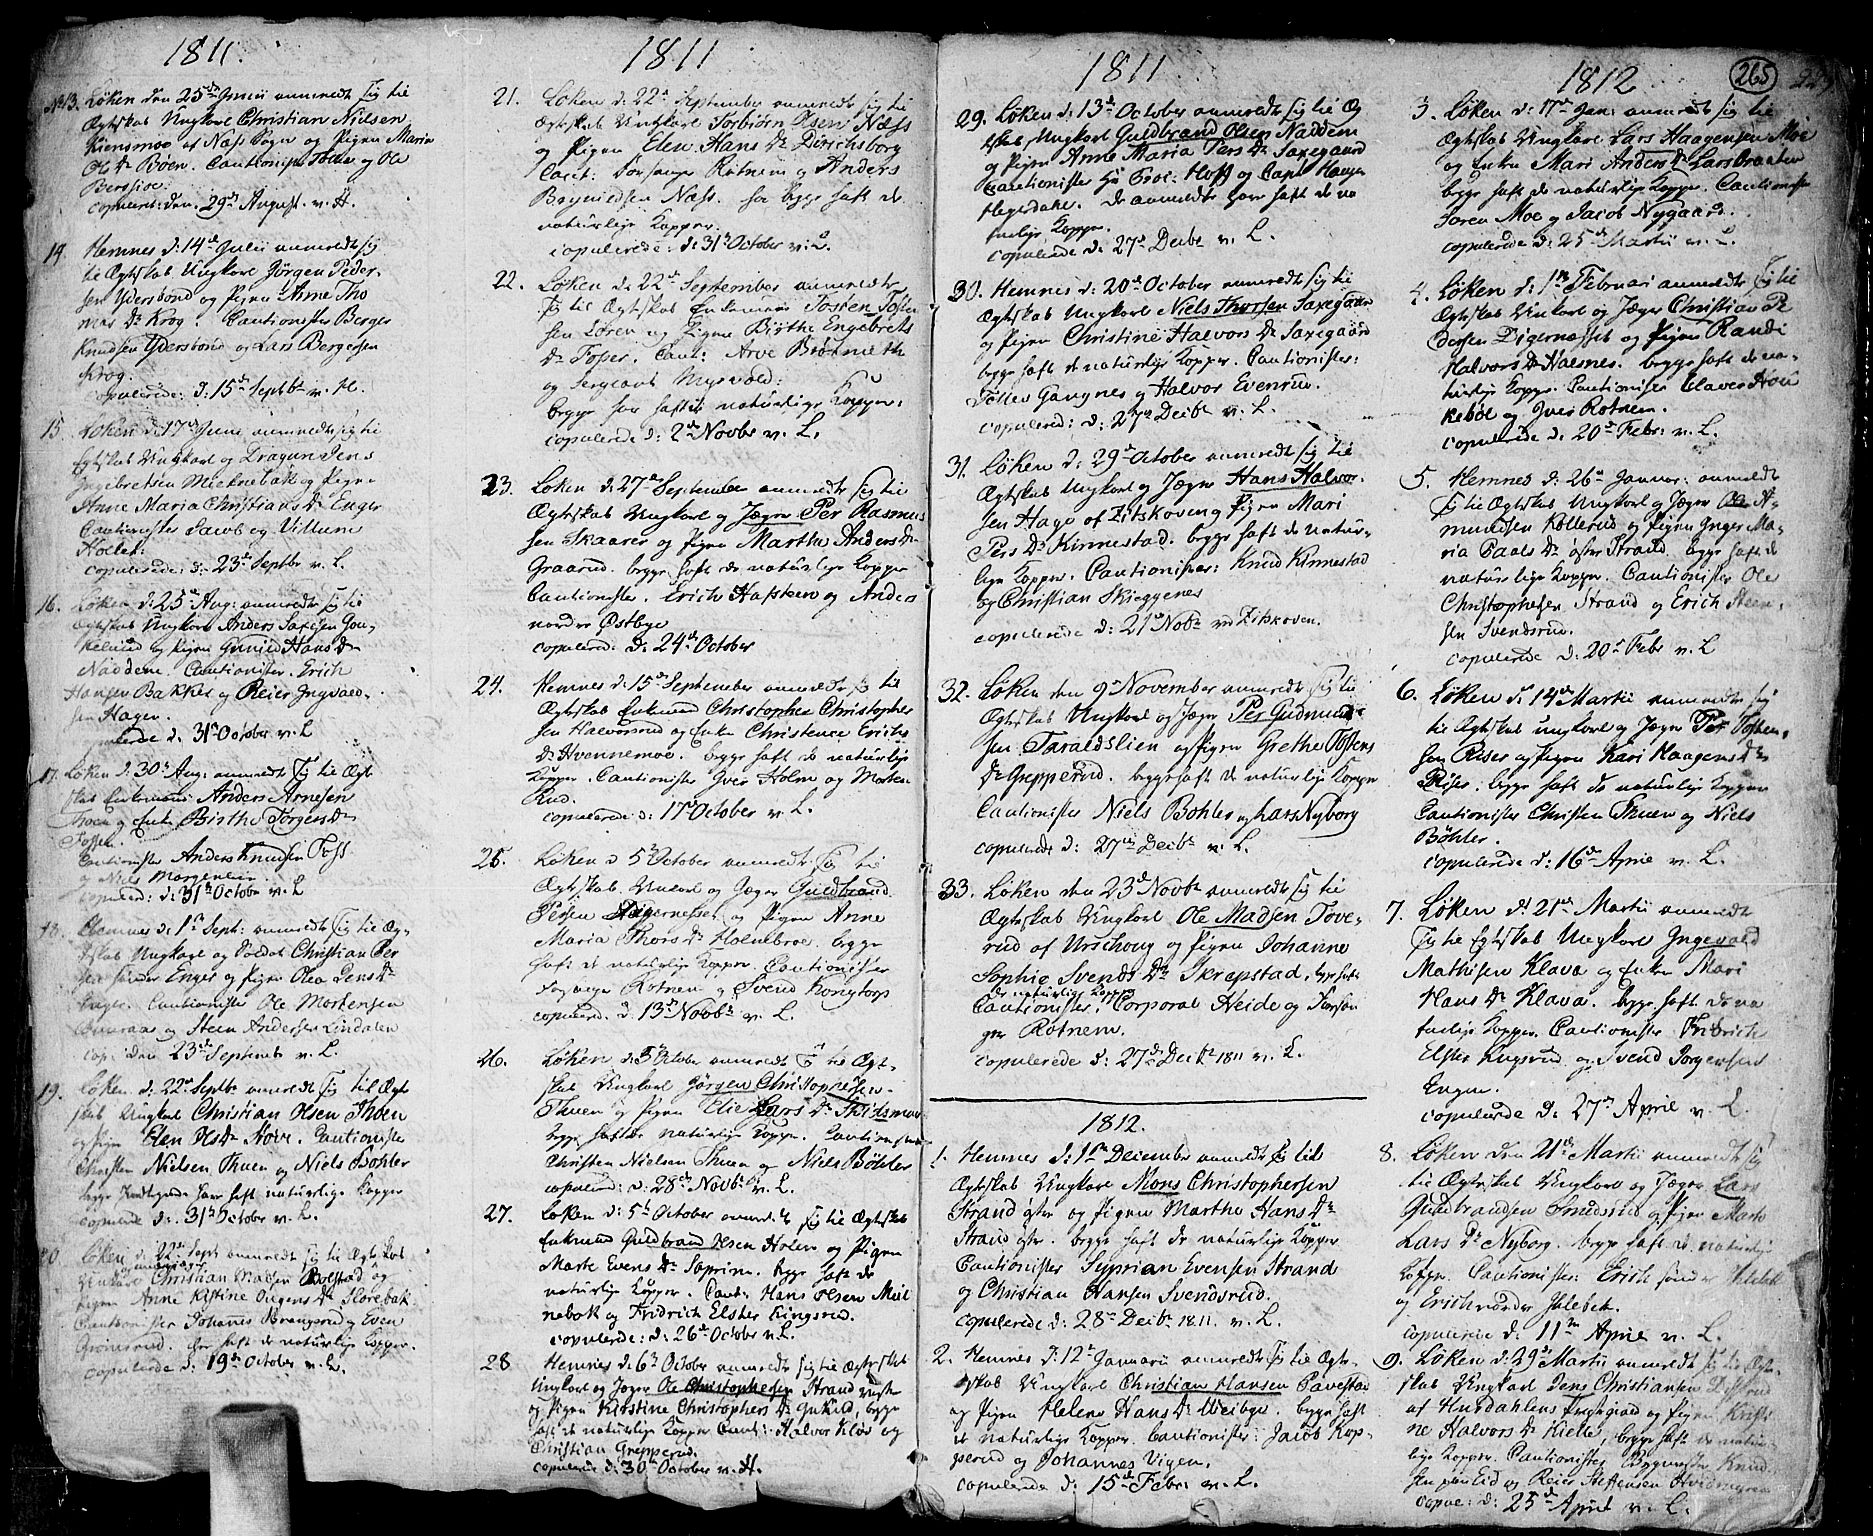 1811.
No 13. Løken den 25de Junii anmeldt sig til
Ægteskab Ungkarl Christian Nielsen
Kiensmoe til Næss Sogn og Pigen Maria
Ols Dr Böen. Cautionister og Ole
copuleret: den. 29de August. v. H.
14 Hemnes d: 14de Julii anmeldt sig
til Ægteskab Ungkarl Jørgen Peder
sen Ydersbond og Pigen Anne Tho
mas Dr Krog. Cautionister Berger
Knudsen Ydersbond og Lars Bergersen
Krog.
copulerede: d: 15de Septbr v. H.
15 Løken d: 17de Junii anmeldt sig til
Egteskab Ungkarl og Dragun Jens
Ingebretsen Mieknebak og Pigen
Anne Maria Christians Dr Enger
Cautionister Jacob og Villum
copulerede: d: 23de Septbr v. L.
16. Løken d: 25de Aug: anmeldt sig til
Ægteskab Ungkarl Anders
og Pigen Gunild Hans Dr
Naddene. Cautionister. Erich
Hansen Bakker og Reier Ingvald
sen Hagen.
copulerede d. 31te October v. L
17. Løken d. 30te Aug: anmeldt sig til Ægte
skab Enkemand Anders Arnesen
og Enke Birthe Jørgens Dr
Fossen.
Cautionister Anders Knudsen Foss
og Niels Morgenlien
copuleret: d: 31te October v. L
18. Hemnes d: 1te Sept: anmeldt sig til Æg-
teskab Ungkarl og Soldat Christian Per
sen sønder Enger og Pigen Olea Jens Dr
Cautionister Ole Mortensen
og Steen Andersen Lindalen
cop: den 23de Septemb v. L.
19. Løken d: 22de Septbr anmeldt sig til Ægte
skab Ungkarl Christian Olsen Thuen
og Pigen Elen Ols Dr Hove. Cautionister
Christen Nielsen Thuen og Niels Bøhler
begge Forlovede har haft naturlige Kopper
copulerede d: 31te October v. L.
20 Løken d: 22de Sept anmeldt sig til Ægteskab
Ungkarl Christian Madsen og
Pigen Anne Kistine
Cautionister Johanis og Even
har haft de naturlige Kopper.
copulerede d: 19de October v. L.
1811
21. Løken d: 22de September anmeldt sig til
Ægteskab Ungkarl Torbiørn Olsen Næss
og Pigen Elen Hans Dr Dirichsborg
Cautt: Torsange Rotnem og Anders
Bøynildsen Næss. har begge haft de
naturlige Kopper.
copulerede: d: 31te October v. L.
22. Løken d: 22de September anmeldt
sig til Ægteskab Enkemand Tosten Tosten
sen Løren og Pigen Birthe Engebrets
Dr Tosser. Caut: Arve Biørneth
og Sergeant Mysvold:
begge har haft de naturlige Kopper.
copulerede d: 2de Novbr v. L.
23. Løken d: 27de September anmeldt sig til
Ægteskab Ungkarl og Jæger Per Rasmus
sen Skaarer og Pigen Marthe Anders Dr
Graarud. begge haft de naturlige Kopper
Cautionister. Erich Hafsteen og Anders
nordre Østbye
copulered: d: 24de October
24. Hemnes d: 15de September anmeldt sig til
Ægteskab Enkemd Christopher Christopher
sen Halvorsrud og Enke Christence Erichs
Dr Hvennemoe. begge haft de naturlige
Kopper. Cautionister Iver Holm og Morten
Rud.
copulerede d: 17de October v. L.
25. Løken d 5te October anmeldt sig til
Ægteskab. Ungkarl og Jæger Guldbrand
Persen Digernesset og Pigen Anne
Maria Thors Dr Holmebroe. begge
haft de naturlige Kopper. Cautionister
Torsange Rotnem og Svend Kongtorp
copulered. d. 13de Novbr v. L.
26. Løken d: 5te October anmeldt sig til Ægt-
skab Ungkarl Jørgen Christophersen
Thuen og Pigen Elie Lars Dr
begge haft de naturlige Kopper. Cautionister
Christen Nielsen Thuen og Niels Bøhler
copulered: d: 28de Novbr v. L.
27. Løken d: 5te October anmeldt sig til Ægteskab
Enkemand Guldbrand Olsen Holen og Pigen
Marte Evens Dr Saprim. begge haft de
naturlige Kopper. Caut: Hans Olsen Miek
nebøk og Fridrich Elster Kingsrud.
copulerede: d: 26de October v. L.
28 Hemnes d: 6te October anmeldt sig til Ægteskab
Ungkarl og Jæger Ole Christophersen Strand vestre
og Pigen Kirstine Christophers Dr. begge
haft de naturlige Kopper Caut: Halvor Kløs og
Christian Grepperud.
copulerede d: 30te October v. H.
1811
29. Løken d: 13de October anmeldt sig til Æg
teskab, Ungkarl Guldbrand Olsen Naddem
og Pigen Anne Maria Pers Dr Saxegaard
Cautionister Hr Proc: Hoff og Capt Hauge
Hegedahl. De anmeldte have haft de na
turlige Kopper.
copulerede d: 27de Decbr v. L.
30. Hemnes d: 20de October anmeldt sig til
Ægteskab Ungkarl Niels Thorsen Saxegaard
og Pigen Christine Halvors Dr Saxegaard
begge haft de naturlige Kopper. Cautionister:
Tosten Gangnes og Halvor Evenrud.
copulered: d: 27de Decbr v. L.
31. Løken d. 29de October anmeldt sig til
Ægteskab Ungkarl og Jæger Hans Halvor-
sen Hage af Eidskoven og Pigen Mari
Pers Dr Kinnestad. begge haft de natur-
lige Kopper. Cautionister: Knud Kinnestad
og Christian Skieggenes
copulerede d: 21de Novbr ved Eidskoven.
32. Løken den 9de November anmeldt sig til
Ægteskab Ungkarl og Jæger Per Gudmund
sen Taraldslien og Pigen Grethe Tostens
Dr Grepperud. begge haft de naturlige Kopper
Cautionister Niels Bøhler og Lars Nyborg
copulerede d: 27de Decbr v. L.
33. Løken den 23de Novbr anmeldt sig til
Ægteskab Ungkarl Ole Madsen Tove-
rud af Urschoug og Pigen Johanne
Sophie Svends Dr Skrepstad. begge haft
de naturlige Kopper
Cautionister. Corporal Heide og Torsan
ger Rotnem.
copulerede d: 27de Decbr 1811 v. L.
1812.
1. Hemnes d: 1te December anmeldt sig til
Ægteskab Ungkarl Mons Christophersen
Strand østr og Pigen Marthe Hans Dr
Strand østr. begge haft de naturlige Kopper
Cautionister Syprian Evensen Strand
og Christian Hansen Svendsrud.
copulerede d: 28de Decbr 1811. v. L.
2. Hemnes d: 12te Januarii anmeldt sig til Ægte-
skab Ungkarl Christian Hansen Pavestad
og Pigen Helene Hans Dr. begge haft
de naturlige Kopper. Cautionister: Jacob Kop-
perud og Johannes Vigen.
copulerede d: 15de Febr: v. L.
1812
265
229
3. Løken d: 17de Jan: anmeldt sig til
Ægteskab Ungkarl Lars Haagensen Moe
og Enke Mari Anders Dr Larsbraaten
begge haft de naturlige Kopper. Cautionister
Søren Moe og Jacob Nygaard.
copulerede d: 25de Martii v. L.
4. Løken d: 1te Februari anmeldt sig til
Ægteskab Ungkarl og Jæger Christian Pe
dersen Digernesset og Pigen Randi
Halvors Dr Halsnes. begge haft de na-
turlige Kopper. Cautionister Claves Hou
kebøl og Iver Rotnem.
copulerede d. 20de Febr: v. L.
5. Hemnes d: 26de Januar: anmeldt
sig til Ægteskab Ungkarl og Jæger Ole A-
mundsen Kollerud og Pigen Inger Ma-
ria Paals Dr østre Strand. begge haft de
naturlige Kopper. Cautionister Ole
Christophersen Strand og Erich Steen-
sen Svendsrud.
copulerede d: 20de Febr v. L
6. Løken d: 14de Martii anmeldt sig
til Ægteskab Ungkarl og Jæger Per Tosten-
sen Riser og Pigen Kari Haagens Dr
Riser. begge haft de naturlige Kopper
Cautionister Christen Thuen og Niels
Bøhler.
copulerede d: 16de April v. L.
7. Løken d: 21de Martii anmeldt
sig til Egteskab Ungkarl Ingevald
Mathisen Klava og Enken Mari
Hans Dr Klava. begge haft de na
turlige Kopper. Cautionister Fridrich
Elster Kingsrud og Svend Jørgensen
Engen.
copulerede d: 27de April v. L.
8. Løken den 21de Martii anmeldt sig
til Ægteskab Ungkarl og Jæger Lars
Guldbrandsen Smedsrud og Pigen Marte
Lars Dr Nyborg. begge haft de naturlige
Kopper. Cautionister: Erich sønder
og Erich nordre
copulerede d: 11te April v. L.
9. Løken d: 29de Martii anmeldt sig til Ægte-
skab Ungkarl Jens Christiansen
af Hurdahlens Prestegield og Pigen Kristi
ne Halvors Dr Kielle, begge haft de natur-
lige Kopper. Cautionister
Eid og Reier Steffensen
copul: d: 25de April v. L.